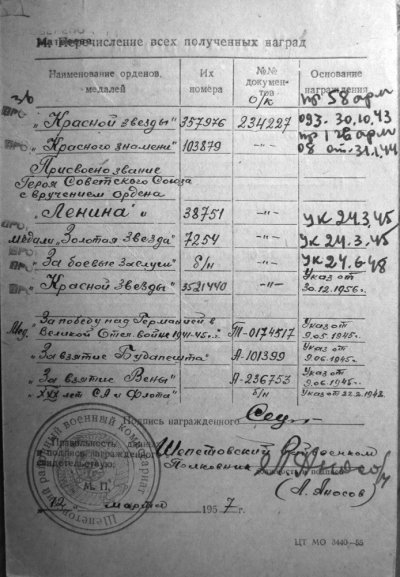 Перечисление всех полученных наград
Наименование орденов, медалей | Их номера | №№ документов | Основание награждения
о/к | пр 58 арм
„Красной звезды" 357976 234227 093. 30.10.43
„Красного знамени" 103879 -"- 08 от. 31.1.44
Присвоено звание
Героя Советского Союза
с вручением ордена
„Ленина" 38751 -"- УК 24.3.45
медали „Золотая Звезда" 7254 -"- УК 24.3.45
„За боевые заслуги" б/н -"- УК 24.6.48
„Красной Звезды" 3521440 -"- Указ от 30.12.1956г.
Мед. „За победу над Германией в
Великой Отеч. войне 1941-45г.г. Т-0174517 Указ от 9.05.1945г.
„За взятие Будапешта" А-101399 Указ от 9.06.1945г.
„За взятие Вены" А-236753 Указ от 9.06.1945г.
„XXX лет СА и Флота" б/н Указ от 22.2.1948
Подпись награжденного
Правильность
и подписи награжденного
свидетельствую:
Шепетовский Райвоенком
Полковник
М. П.
(А. Аносов)
12 марта 1957 г.
Шепетовский районный военный комиссариат
ЦТ МО 3440—55